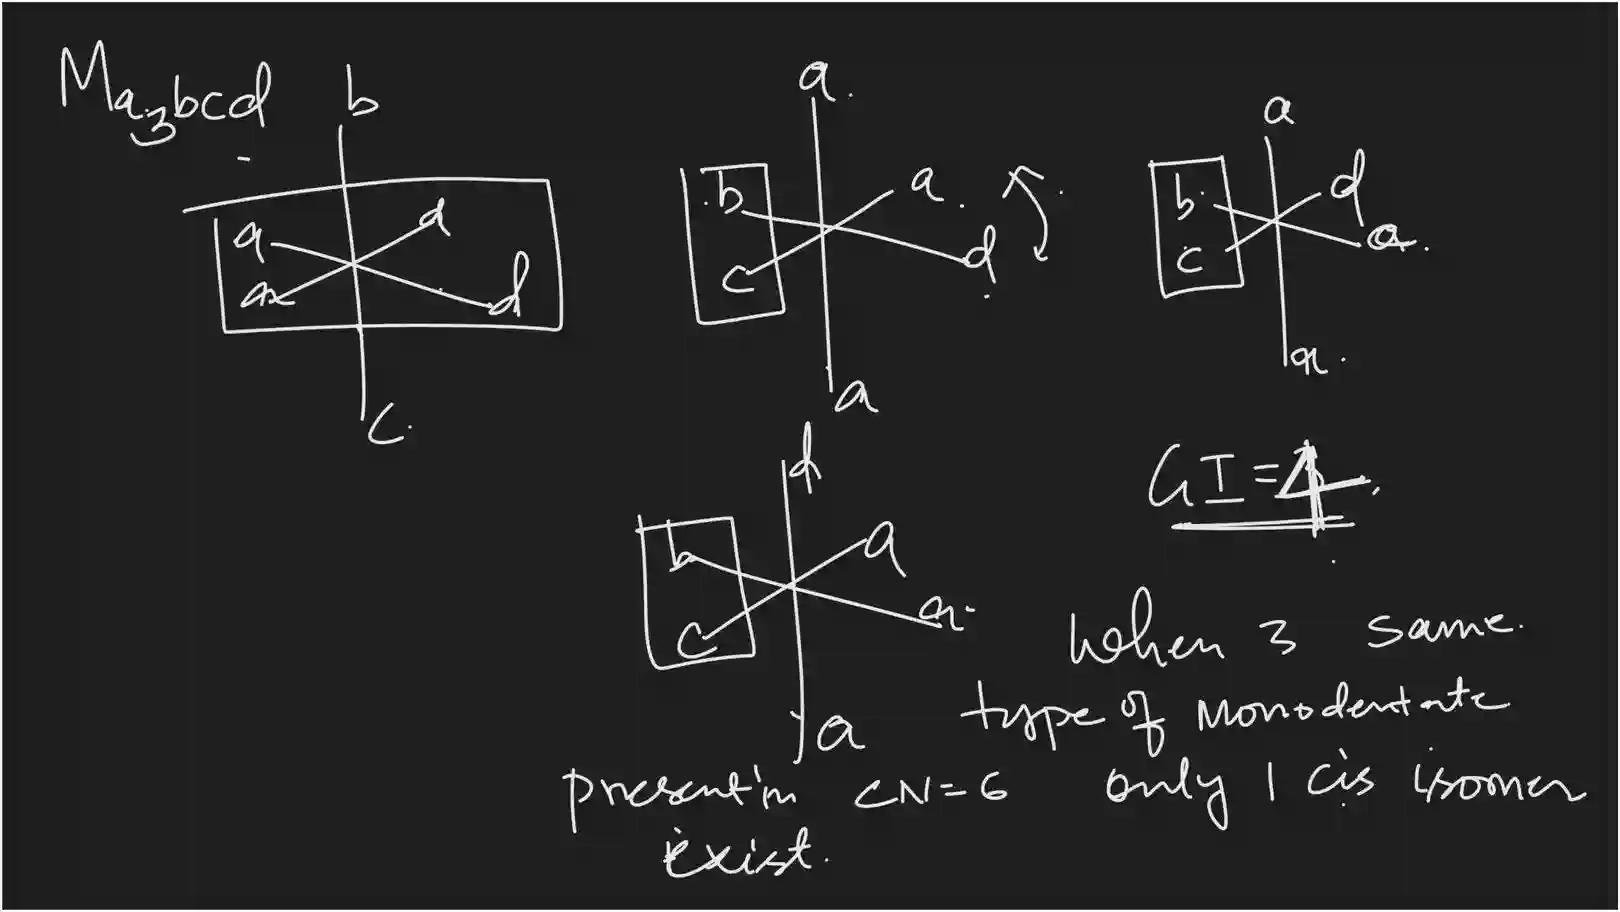 Ma3bcd
b
a
d
a
d
c.
a.
b
a.
c
d
a
a
b
d
c
a.
a.
d
b
a
c
a
a
GI=4
When 3 same.
type of Monodentate
present in CN=6 only 1 cis isomer
exist.